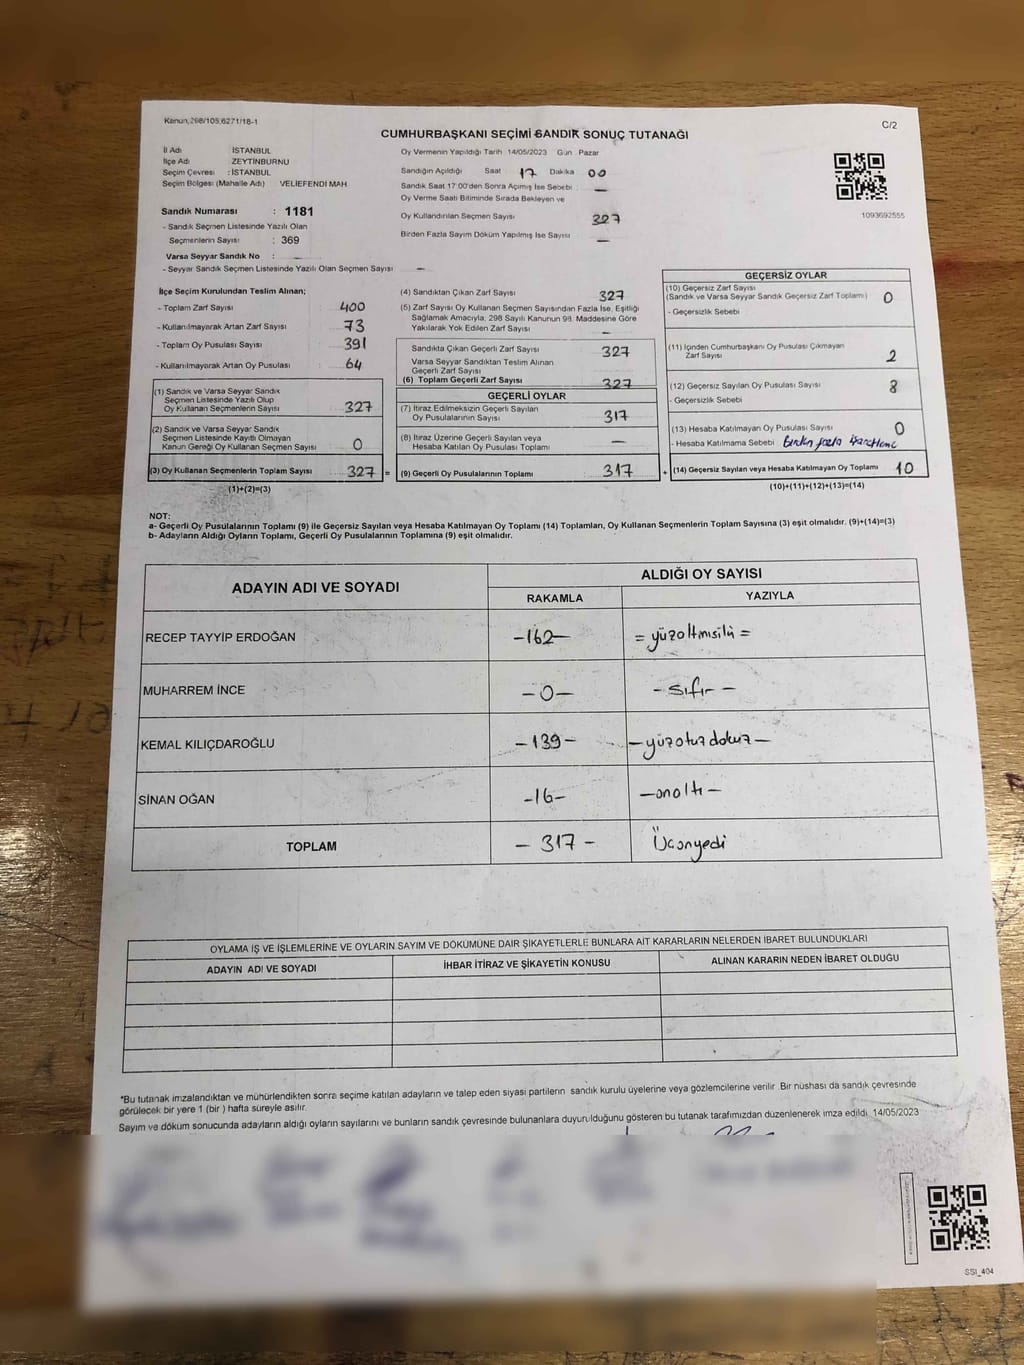 Kanun,298/105,6271/18-1
C/2
CUMHURBAŞKANI SEÇİMİ SANDIK SONUÇ TUTANAĞI
İl Adı : İSTANBUL
İlçe Adı : ZEYTİNBURNU
Seçim Çevresi : İSTANBUL
Seçim Bölgesi (Mahalle Adı) : VELİEFENDİ MAH.
Sandık Numarası : 1181
- Sandık Seçmen Listesinde Yazılı Olan
Seçmenlerin Sayısı : 369
Varsa Seyyar Sandık No : —
- Seyyar Sandık Seçmen Listesinde Yazılı Olan Seçmen Sayısı —
Oy Vermenin Yapıldığı Tarih 14/05/2023 Gün Pazar
Sandığın Açıldığı Saat 17 Dakika 00
Sandık Saat 17:00'den Sonra Açımış İse Sebebi : —
Oy Verme Saati Bitiminde Sırada Bekleyen ve
Oy Kullandırılan Seçmen Sayısı 327
Birden Fazla Sayım Döküm Yapılmış İse Sayısı —
1093692555
İlçe Seçim Kurulundan Teslim Alınan;
- Toplam Zarf Sayısı : 400
- Kullanılmayarak Artan Zarf Sayısı : 73
- Toplam Oy Pusulası Sayısı : 391
- Kullanılmayarak Artan Oy Pusulası : 64
(1) Sandık ve Varsa Seyyar Sandık
Seçmen Listesinde Yazılı Olup
Oy Kullanan Seçmenlerin Sayısı : 327
(2) Sandık ve Varsa Seyyar Sandık
Seçmen Listesinde Kayıtlı Olmayan
Kanun Gereği Oy Kullanan Seçmen Sayısı : 0
(3) Oy Kullanan Seçmenlerin Toplam Sayısı : 327 =
(1)+(2)=(3)
(4) Sandıktan Çıkan Zarf Sayısı 327
(5) Zarf Sayısı Oy Kullanan Seçmen Sayısından Fazla İse, Eşitliği
Sağlamak Amacıyla, 298 Sayılı Kanunun 98. Maddesine Göre
Yakılarak Yok Edilen Zarf Sayısı —
Sandıkta Çıkan Geçerli Zarf Sayısı 327
Varsa Seyyar Sandıktan Teslim Alınan
Geçerli Zarf Sayısı
(6) Toplam Geçerli Zarf Sayısı 327
GEÇERLİ OYLAR
(7) İtiraz Edilmeksizin Geçerli Sayılan
Oy Pusulalarının Sayısı 317
(8) İtiraz Üzerine Geçerli Sayılan veya
Hesaba Katılan Oy Pusulası Toplamı —
(9) Geçerli Oy Pusulalarının Toplamı 317 +
GEÇERSİZ OYLAR
(10) Geçersiz Zarf Sayısı
(Sandık ve Varsa Seyyar Sandık Geçersiz Zarf Toplamı) 0
- Geçersizlik Sebebi
(11) İçinden Cumhurbaşkanı Oy Pusulası Çıkmayan
Zarf Sayısı 2
(12) Geçersiz Sayılan Oy Pusulası Sayısı 8
- Geçersizlik Sebebi
(13) Hesaba Katılmayan Oy Pusulası Sayısı 0
- Hesaba Katılmama Sebebi birden fazla
(14) Geçersiz Sayılan veya Hesaba Katılmayan Oy Toplamı 10
(10)+(11)+(12)+(13)=(14)
NOT:
a- Geçerli Oy Pusulalarının Toplamı (9) ile Geçersiz Sayılan veya Hesaba Katılmayan Oy Toplamı (14) Toplamları, Oy Kullanan Seçmenlerin Toplam Sayısına (3) eşit olmalıdır. (9)+(14)=(3)
b- Adayların Aldığı Oyların Toplamı, Geçerli Oy Pusulalarının Toplamına (9) eşit olmalıdır.
ADAYIN ADI VE SOYADI
ALDIĞI OY SAYISI
RAKAMLA YAZIYLA
RECEP TAYYİP ERDOĞAN -162- = yüzaltmışiki =
MUHARREM İNCE -0- - sıfır -
KEMAL KILIÇDAROĞLU -139- -yüzotuzdokuz-
SİNAN OĞAN -16- -onaltı-
TOPLAM -317- Üçonyedi
OYLAMA İŞ VE İŞLEMLERİNE VE OYLARIN SAYIM VE DÖKÜMÜNE DAİR ŞİKAYETLERLE BUNLARA AİT KARARLARIN NELERDEN İBARET BULUNDUKLARI
ADAYIN ADI VE SOYADI İHBAR İTİRAZ VE ŞİKAYETİN KONUSU ALINAN KARARIN NEDEN İBARET OLDUĞU
*Bu tutanak imzalandıktan ve mühürlendikten sonra seçime katılan adayların ve talep eden siyasi partilerin sandık kurulu üyelerine veya gözlemcilerine verilir. Bir nüshası da sandık çevresinde
görülecek bir yere 1 (bir) hafta süreyle asılır.
Sayım ve döküm sonucunda adayların aldığı oyların sayılarını ve bunların sandık çevresinde bulunanlara duyurulduğunu gösteren bu tutanak tarafımızdan düzenlenerek imza edildi. 14/05/2023
SSI_404